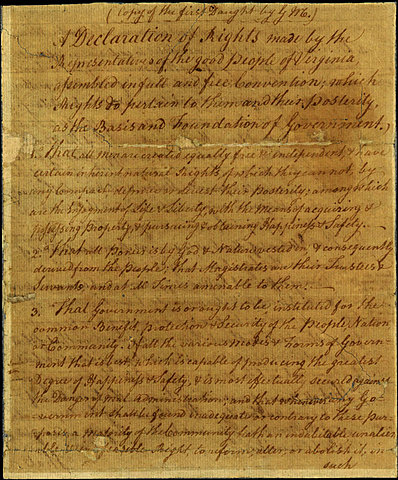 (Copy of the first Daught by G M.)
A Declaration of Rights made by the
Representatives of the good People of Virginia
assembled in full and free Convention; which
Rights do pertain to them and their Posterity,
as the Basis and Foundation of Government.
1. That all men are created equally free & independent, & have
certain inherent natural Rights, of which they cannot, by
any Compact, deprive or divest their Posterity; among which
are the Enjoyment of Life & Liberty, with the Means of acquiring &
possessing Property, & pursueing & obtaining Happiness & Safety.
2. That all Power is by God & Nature vested in, & consequently
derived from the People; that Magistrates are their Trustees &
Servants, and at all Times aminable to them.
3. That Government is or ought to be instituted for the
common Benefit, protection & Security of the People, Nation
or Community. Of all the various modes & Forms of Govern-
ment that is best, which is capable of producing the greatest
Degree of Happiness & Safety, & is most effectually secured against
the Danger of mal-administration; and that whenever any Go-
vernment shall be found inadequate or contrary to these pur-
poses, a majority of the Community hath an indubitable unalien-
able indefeasible Right to reform, alter or abolish it, in
such